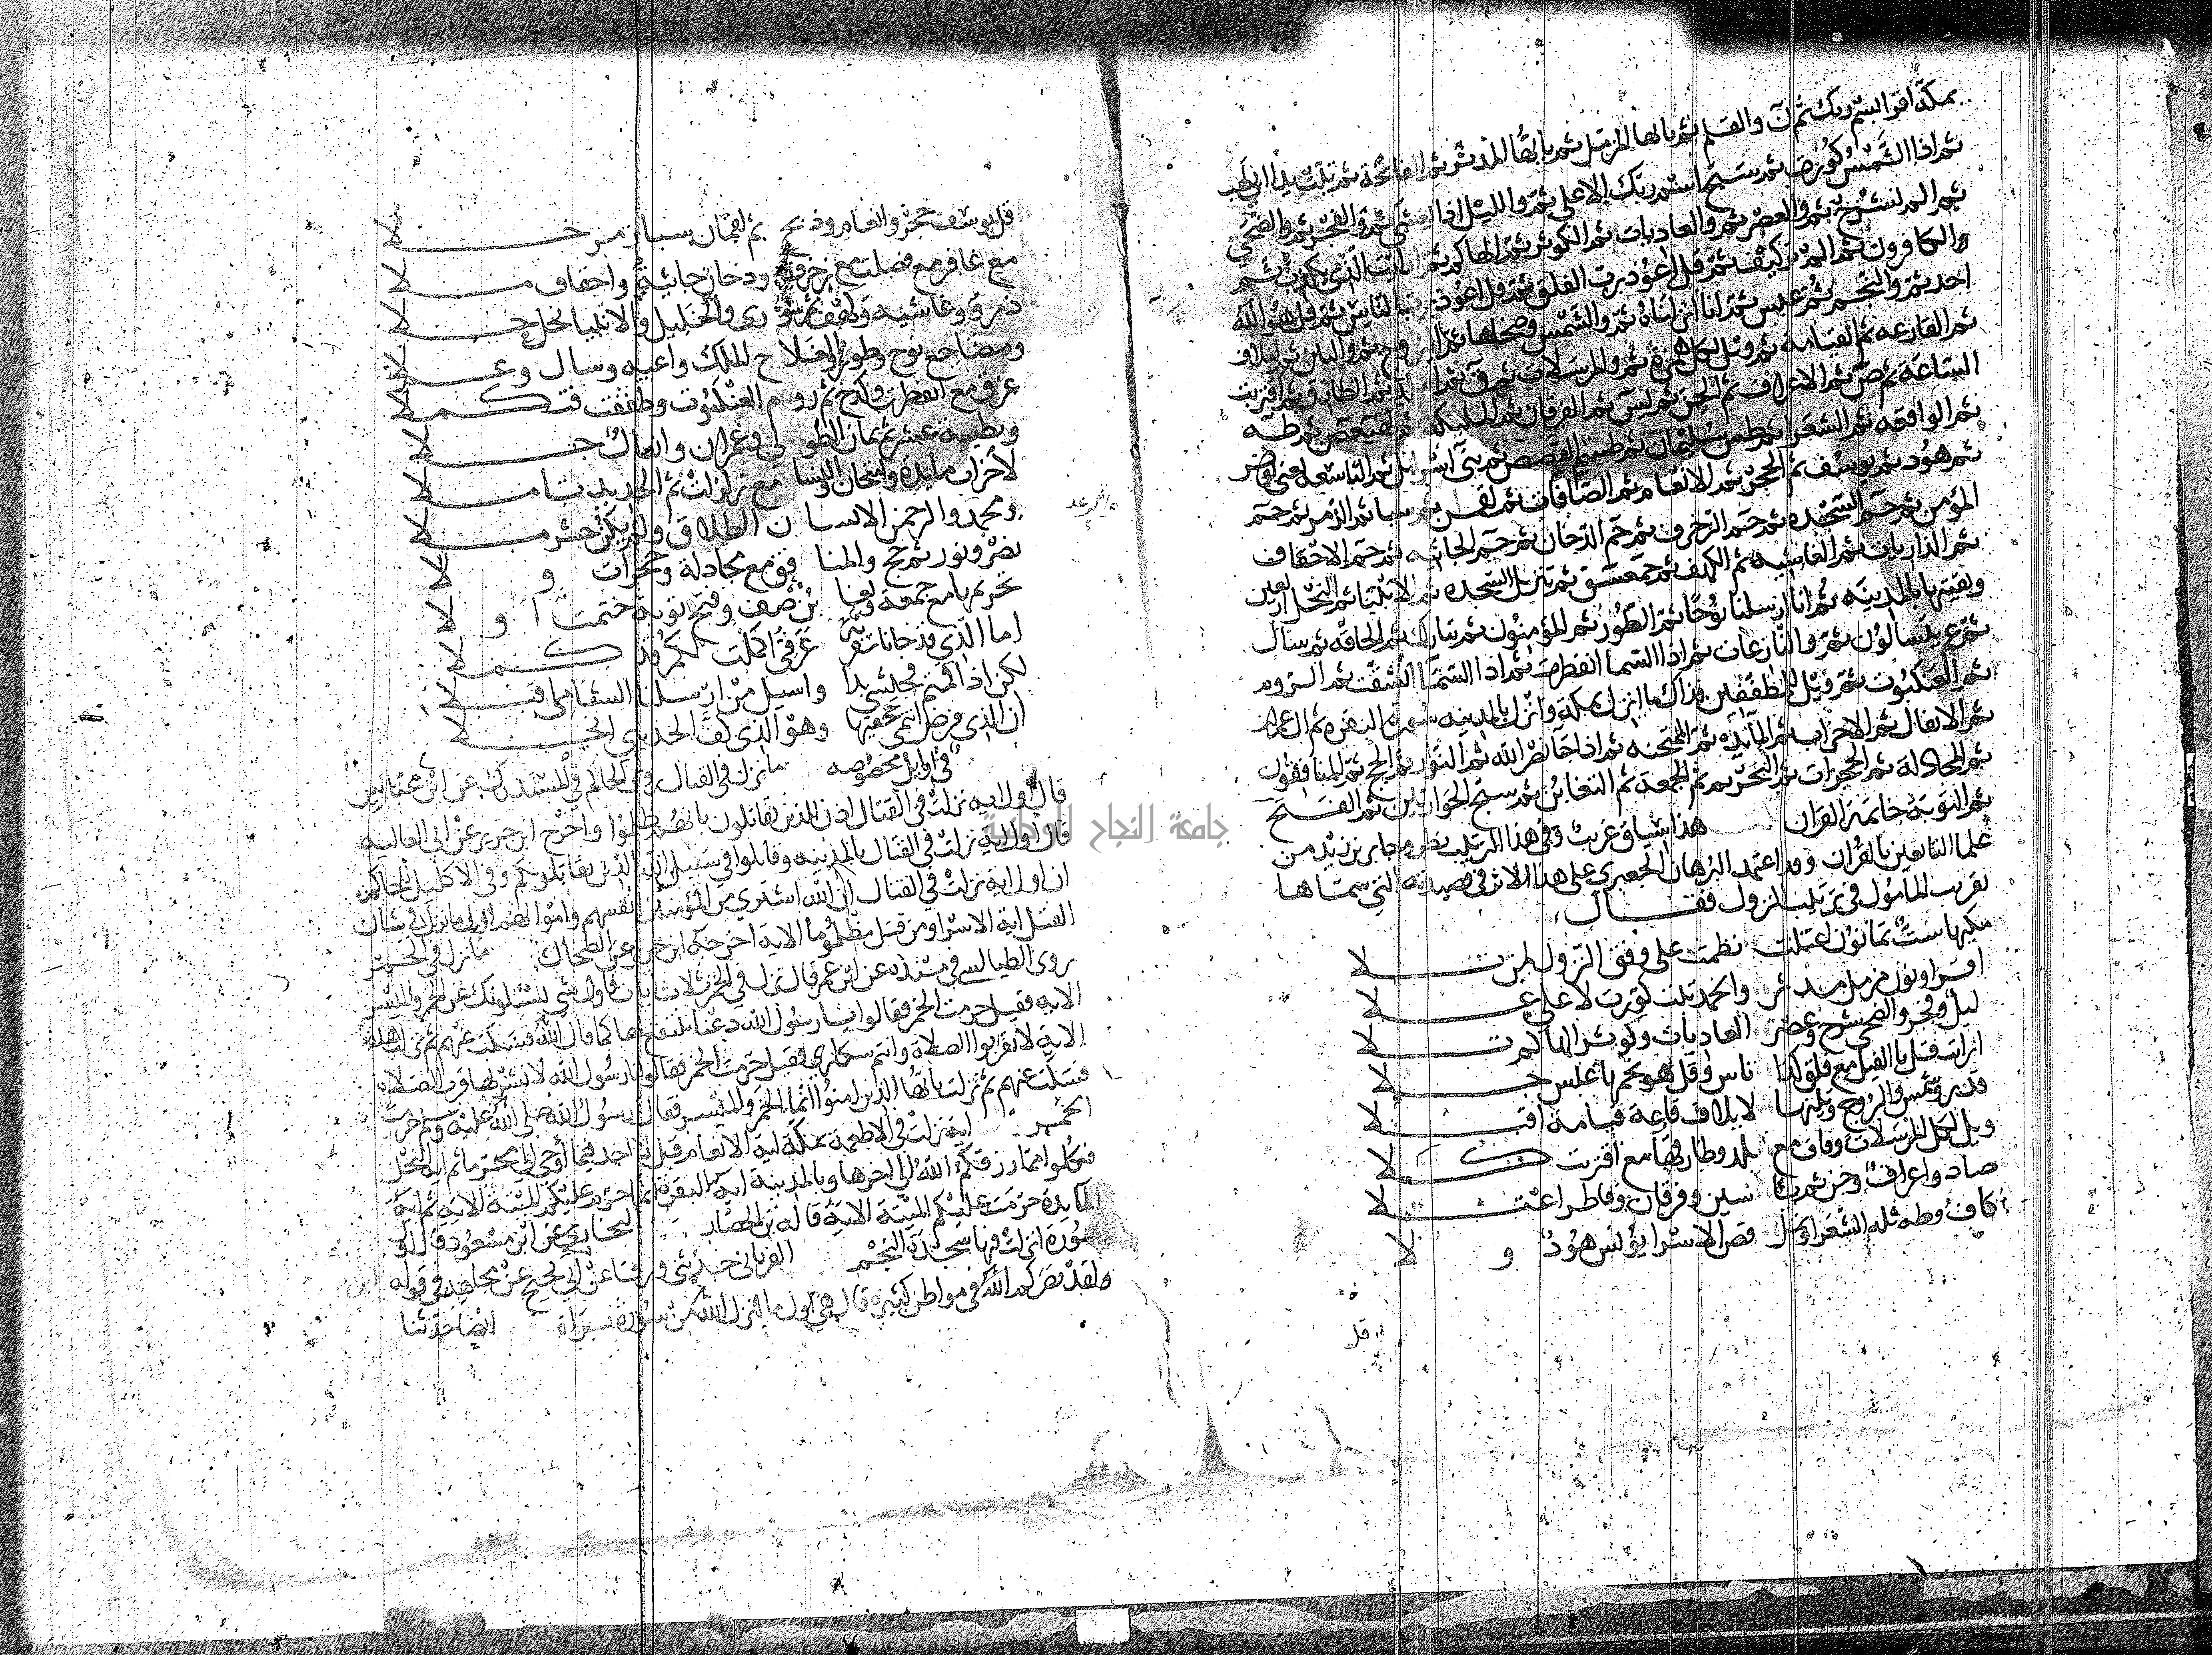 بمكة اقرا باسم ربك ثم ن والقلم ثم يا ايها المزمل ثم يا ايها المدثر ثم الفاتحة ثم تبت يدا ابي لهب
ثم اذا الشمس كورت ثم سبح اسم ربك الاعلى ثم والليل اذا يغشى ثم والفجر ثم والضحى
ثم الم نشرح ثم والعصر ثم والعاديات ثم الكوثر ثم الهاكم ثم ارايت الذي يكذب ثم
والكافرون ثم الم تر كيف ثم قل اعوذ برب الفلق ثم قل اعوذ برب الناس ثم قل هو الله
احد ثم والنجم ثم عبس ثم انا انزلناه ثم والشمس وضحاها ثم البروج ثم والتين ثم لايلاف
ثم القارعه ثم القيامة ثم ويل لكل همزة ثم والمرسلات ثم ق ثم البلد ثم الطارق ثم اقتربت
الساعة ثم ص ثم الاعراف ثم الجن ثم يس ثم الفرقان ثم الملئكه ثم كهيعص ثم طه
ثم الواقعه ثم الشعرا ثم طس سليمان ثم طسم القصص ثم بني اسرايل ثم التاسعه يعني يونس
ثم هود ثم يوسف ثم الحجر ثم الانعام ثم الصافات ثم لقمن ثم سبا ثم الزمر ثم حم
المؤمن ثم حم السجده ثم حم الزخرف ثم حم الدخان ثم حم الجاثيه ثم حم الاحقاف
ثم الذاريات ثم الغاشيه ثم الكهف ثم حمعسق ثم تنزيل السجده ثم الانبيا ثم النحل اربعين
وبقيتها بالمدينه ثم انا ارسلنا نوحا ثم الطور ثم المؤمنون ثم تبارك ثم الحاقه ثم سال
ثم عم يتسالون ثم والنازعات ثم اذا السما انفطرت ثم اذا السما انشقت ثم الروم
ثم العنكبوت ثم ويل للمطففين فذاك ما انزل بمكة وانزل بالمدينه سورة البقره ثم ال عمران
ثم الانفال ثم الاحزاب ثم المايده ثم الممتحنه ثم اذا جا نصر الله ثم النور ثم الحج ثم المنافقون
ثم المجادلة ثم الحجرات ثم التحريم ثم الجمعة ثم التغابن ثم سبح الحواريين ثم الفتح
ثم التوبة خاتمة القران هذا سياق غريب وفي هذا الترتيب نظر وجابر بن زيد من
علما التابعين بالقران وقد اعتمد البرهان الجعبري على هذا الاثر في قصيدته التي سماها
تقريب المامول في ترتيب النزول فقـــــال
مكيها ست ثمانون اعتلت نظمت على وفق النزول لمن تـــلا
اقرا ونون مزمل مدثر والحمد تبت كورت لاعلى عـــلا
ليل وفجر والضحى شرح وعصر العاديات وكوثر الهاكم تـــلا
ارايت قل بالفيل مع فلق كذا ناس وقل هو نجمها عبس جـــلا
قدر وشمس والبروج وتينها لايلاف قارعة قيامة اقبـــلا
ويل لكل المرسلات وقاف مع بلد وطارقها مع اقتربت كـــلا
صاد واعراف وجن ثم يس وفرقان وفاطر اعتـــلا
كاف وطه ثله الشعرا ونمل قص الاسرا يونس هود و لا
قل
قل يوسف حجر وانعام وذبح ثم لقمان سبا زمر خـــلا
مع غافر مع فصلت مع زخرف ودخان جاثية واحقاف تـــلا
ذرو وغاشيه وكهف ثم شورى والخليل والانبيا نحل حـــلا
ومضاجع نوح وطور والفلاح الملك واعيه وسال وعـــلا
غرق مع انفطرت وكدح ثم روم العنكبوت وطففت فتكـــملا
وبطيبة عشرون ثمان الطولي وعمران وانفال جـــلا
لاحزاب مايدة وامتحان والنسا مع زلزلت ثم الحديد تامـــلا
ومحمد والرحمن الانسان الطلاق ولم يكن حشر مـــلا
نصر ونور ثم حج والمنافق مع مجادلة وحجرات و لا
تحريمها مع جمعة وتغابن صف وفتح توبة ختمت ا و لا
اما الذي قد جانا سفريه عرفي اكملت لكم قد كـــملا
لكن اذا قمتم فجيشي بدا واسيل من ارسلنا الشامي اقبـــلا
ان الذي فرض انتمى جحفيها وهو الذي كف الحديبي انجـــلا
في اوايل مخصوصه ما نزل في القتال روى الحاكم في المستدرك عن ابن عباس
قال اول اية نزلت في القتال اذن للذين يقاتلون بانهم ظلموا واخرج ابن جرير عن ابي العاليه
قال اول اية نزلت في القتال بالمدينه وقاتلوا في سبيل الله الذين يقاتلونكم وفي الاكليل للحاكم
ان اول اية نزلت في القتال ان الله اشترى من المؤمنين انفسهم واموالهم اول ما نزل في شان
القتل اية الاسرا ومن قتل مظلوما الاية اخرجه ابن جرير عن الضحاك ما نزل في الخمر
روى الطيالسي في مسنده عن ابن عمر قال نزل في الخمر ثلاث ايات فاول شي يسئلونك عن الخمر والميسر
الايه فقيل حرمت الخمر فقالوا يا رسول الله دعنا ننتفع بها كما قال الله فسكت عنهم ثم نزلت هذه
الاية لا تقربوا الصلاة وانتم سكارى فقيل حرمت الخمر فقالوا يا رسول الله لا نشربها قرب الصلاه
فسكت عنهم ثم نزلت يا ايها الذين امنوا انما الخمر والميسر فقال رسول الله صلى الله عليه وسلم حرمت
الخمـــر اية نزلت في الاطعمة بمكة اية الانعام قل لا اجد فيما اوحي الي محرما ثم اية النحل
فكلوا مما رزقكم الله الى اخرها وبالمدينة اية البقرة انما حرم عليكم الميتة الاية ثم اية
المايدة حرمت عليكم الميتة الاية قاله بن الحصار البخاري عن ابن مسعود قال اول
سورة انزلت فيها سجدة النجم الفريابي حدثني ورقا عن ابي نجيح عن مجاهد في قوله
ولقد نصركم الله في مواطن كثيره قال هي اول ما انزل الله من سورة براة ايضا حدثنا
جامعة النجاح الوطنية